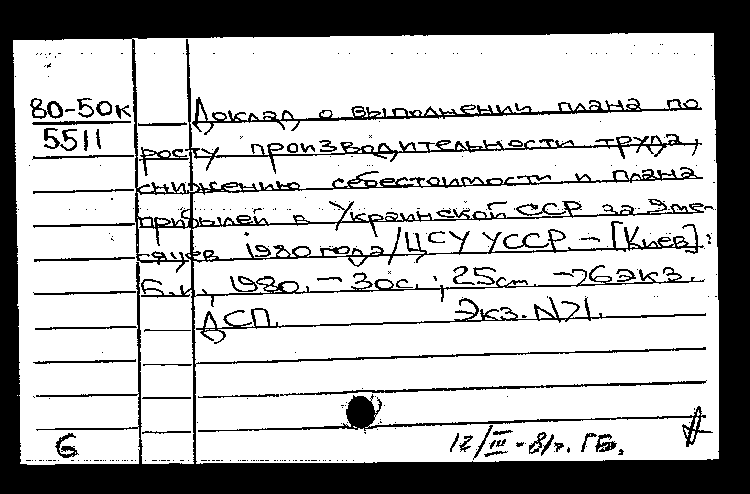 80-50к Доклад о выполнении плана по
5511 росту производительности труда,
снижению себестоимости и плана
прибылей в Украинской ССР за 9 ме-
сяцев 1980 года/ЦСУ УССР. - [Киев]:
Б.и., 1980. - 30с.; 25см. - 76 экз.
ДСП. Экз. N71.
6 12/III-81г. ГБ.